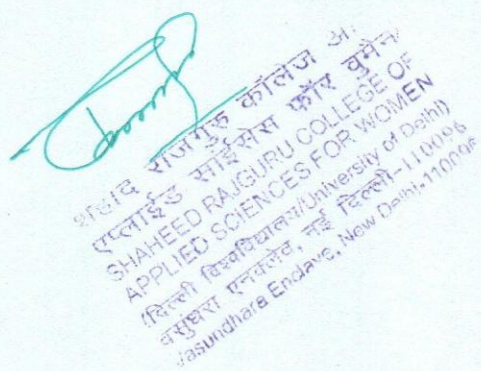 शहीद राजगुरू कॉलेज ऑ
एप्लाईड साईंसेस फॉर वुमेन
SHAHEED RAJGURU COLLEGE OF
APPLIED SCIENCES FOR WOMEN
(दिल्ली विश्वविद्यालय/University of Delhi)
वसुंधरा एनक्लेव, नई दिल्ली-110096
Vasundhara Enclave, New Delhi-110096